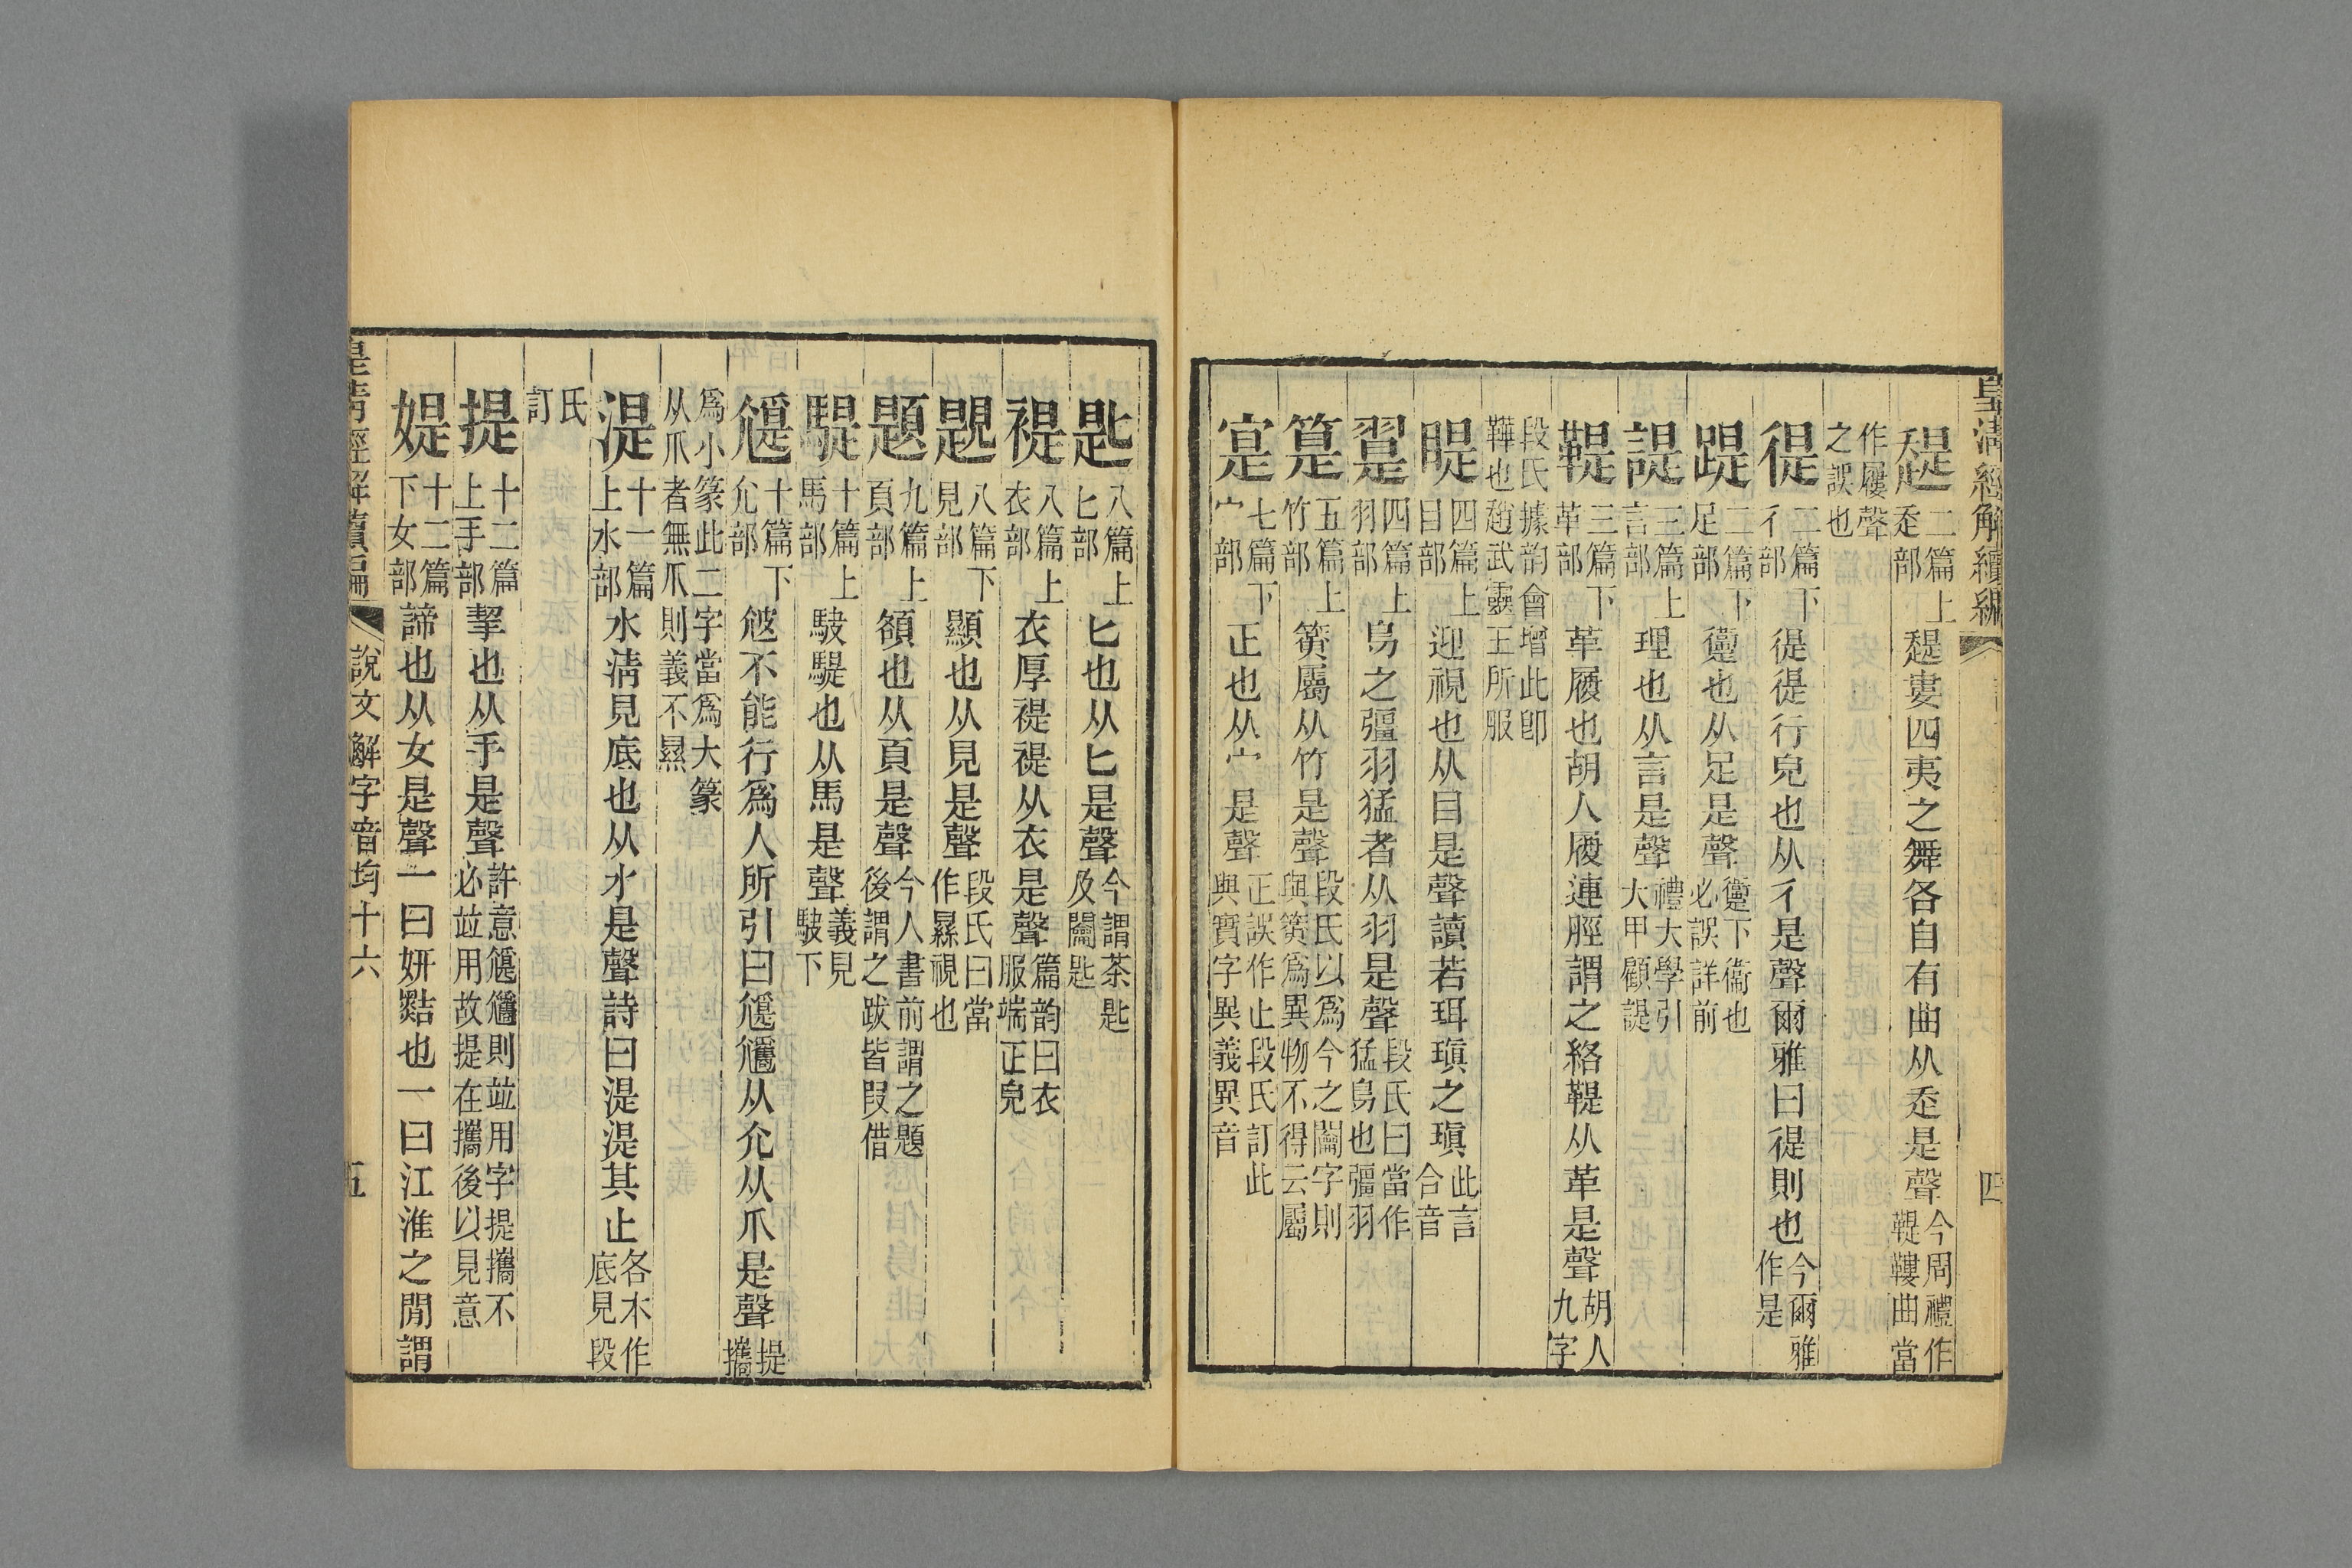 皇淸經解續編 四
䟗二篇上辵部䟗婁四夷之舞各自有曲从辵是聲今周禮作鞮鞻曲當
作屨聲之誤也
徥二篇下彳部徥徥行皃也从彳是聲爾雅曰徥則也今爾雅作是
踶二篇下足部躗也从足是聲躗下衞也必誤詳前
諟三篇上言部理也从言是聲禮大學引大甲顧諟
鞮三篇下革部革履也胡人履連脛謂之絡鞮从革是聲胡人九字
段氏據韵會增此卽鞾也趙武靈王所服
睼四篇上目部迎視也从目是聲讀若珥瑱之瑱此言合音
翨四篇上羽部鳥之彊羽猛者从羽是聲段氏曰當作猛鳥也彊羽
箟五篇上竹部簧屬从竹是聲段氏以爲今之鬮字則與簧爲異物不得云屬
寔七篇下宀部正也从宀是聲正誤作止段氏訂此與實字異義異音
匙八篇上匕部匕也从匕是聲今謂茶匙及鬮匙
褆八篇上衣部衣厚褆褆从衣是聲篇韵曰衣服端正皃
覞八篇下見部顯也从見是聲段氏曰當作㬎視也
題九篇上頁部頟也从頁是聲今人書前謂之題後謂之跋皆叚借
騠十篇上馬部駃騠也从馬是聲義見駃下
尳十篇下允部尳不能行爲人所引曰尳㒞从允从爪是聲提攜
爲小篆此二字當爲大篆从爪者無爪則義不㬎
湜十一篇上水部水淸見底也从水是聲詩曰湜湜其止各本作底見段
氏訂
提十二篇上手部挈也从手是聲許意尳㒞則竝用字提攜不必竝用故提在攜後以見意
媞十二篇下女部諦也从女是聲一曰妍黠也一曰江淮之閒謂
皇淸經解續編 說文解字音均十六 五